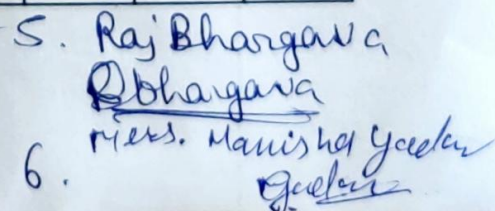 5. Raj Bhargava
Rbhargava
Mrs. Manisha Yadav
6.
Yadav